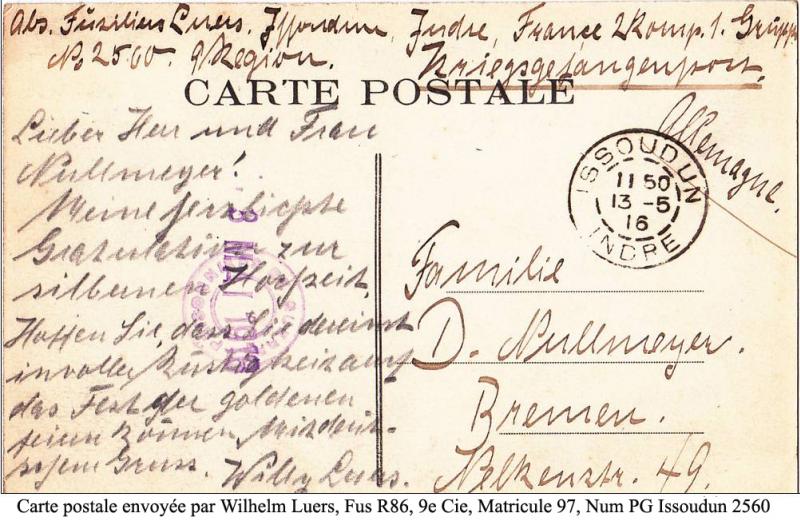 Abs. Füzilier Luers. Issoudun, Indre, France 2 Komp. 1. Gruppe
No 2560. 9 Region.
Kriegsgefangenpost.
CARTE POSTALE
Allemagne.
Lieber Herr und Frau
Nullmeyer!
Meine herzlichste
Gratulation zur
silbernen Hochzeit.
Hoffen Sie, dass Sie dereinst
in voller Rüstigkeit auf
das Fest der goldenen
feiern können, Mit deut-
schem Gruss. Willy Luers.
ISSOUDUN
11 50
13 - 5
16
INDRE
Familie
D. Nullmeyer.
Bremen.
Nelkenstr. 49.
Carte postale envoyée par Wilhelm Luers, Fus R86, 9e Cie, Matricule 97, Num PG Issoudun 2560